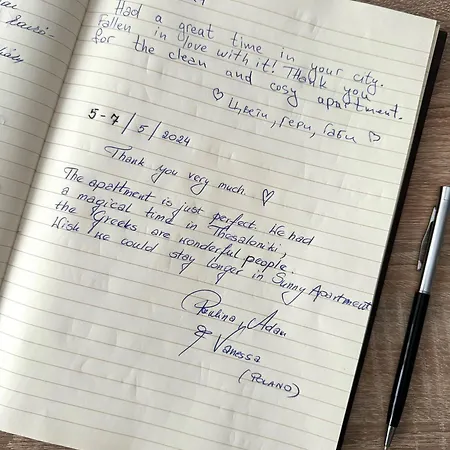 Had a great time in your city.
Fallen in love with it! Thank you
for the clean and cosy apartment.
♡ Цвети, Гери, Габи ♡
5-7/5/2024
Thank you very much. ♡
The apartment is just perfect. We had
a magical time in Thesaloniki,
the Greeks are wonderful people.
Wish we could stay longer in Sunny Apartment
Paulina, Adam
& Vanessa
(POLAND)